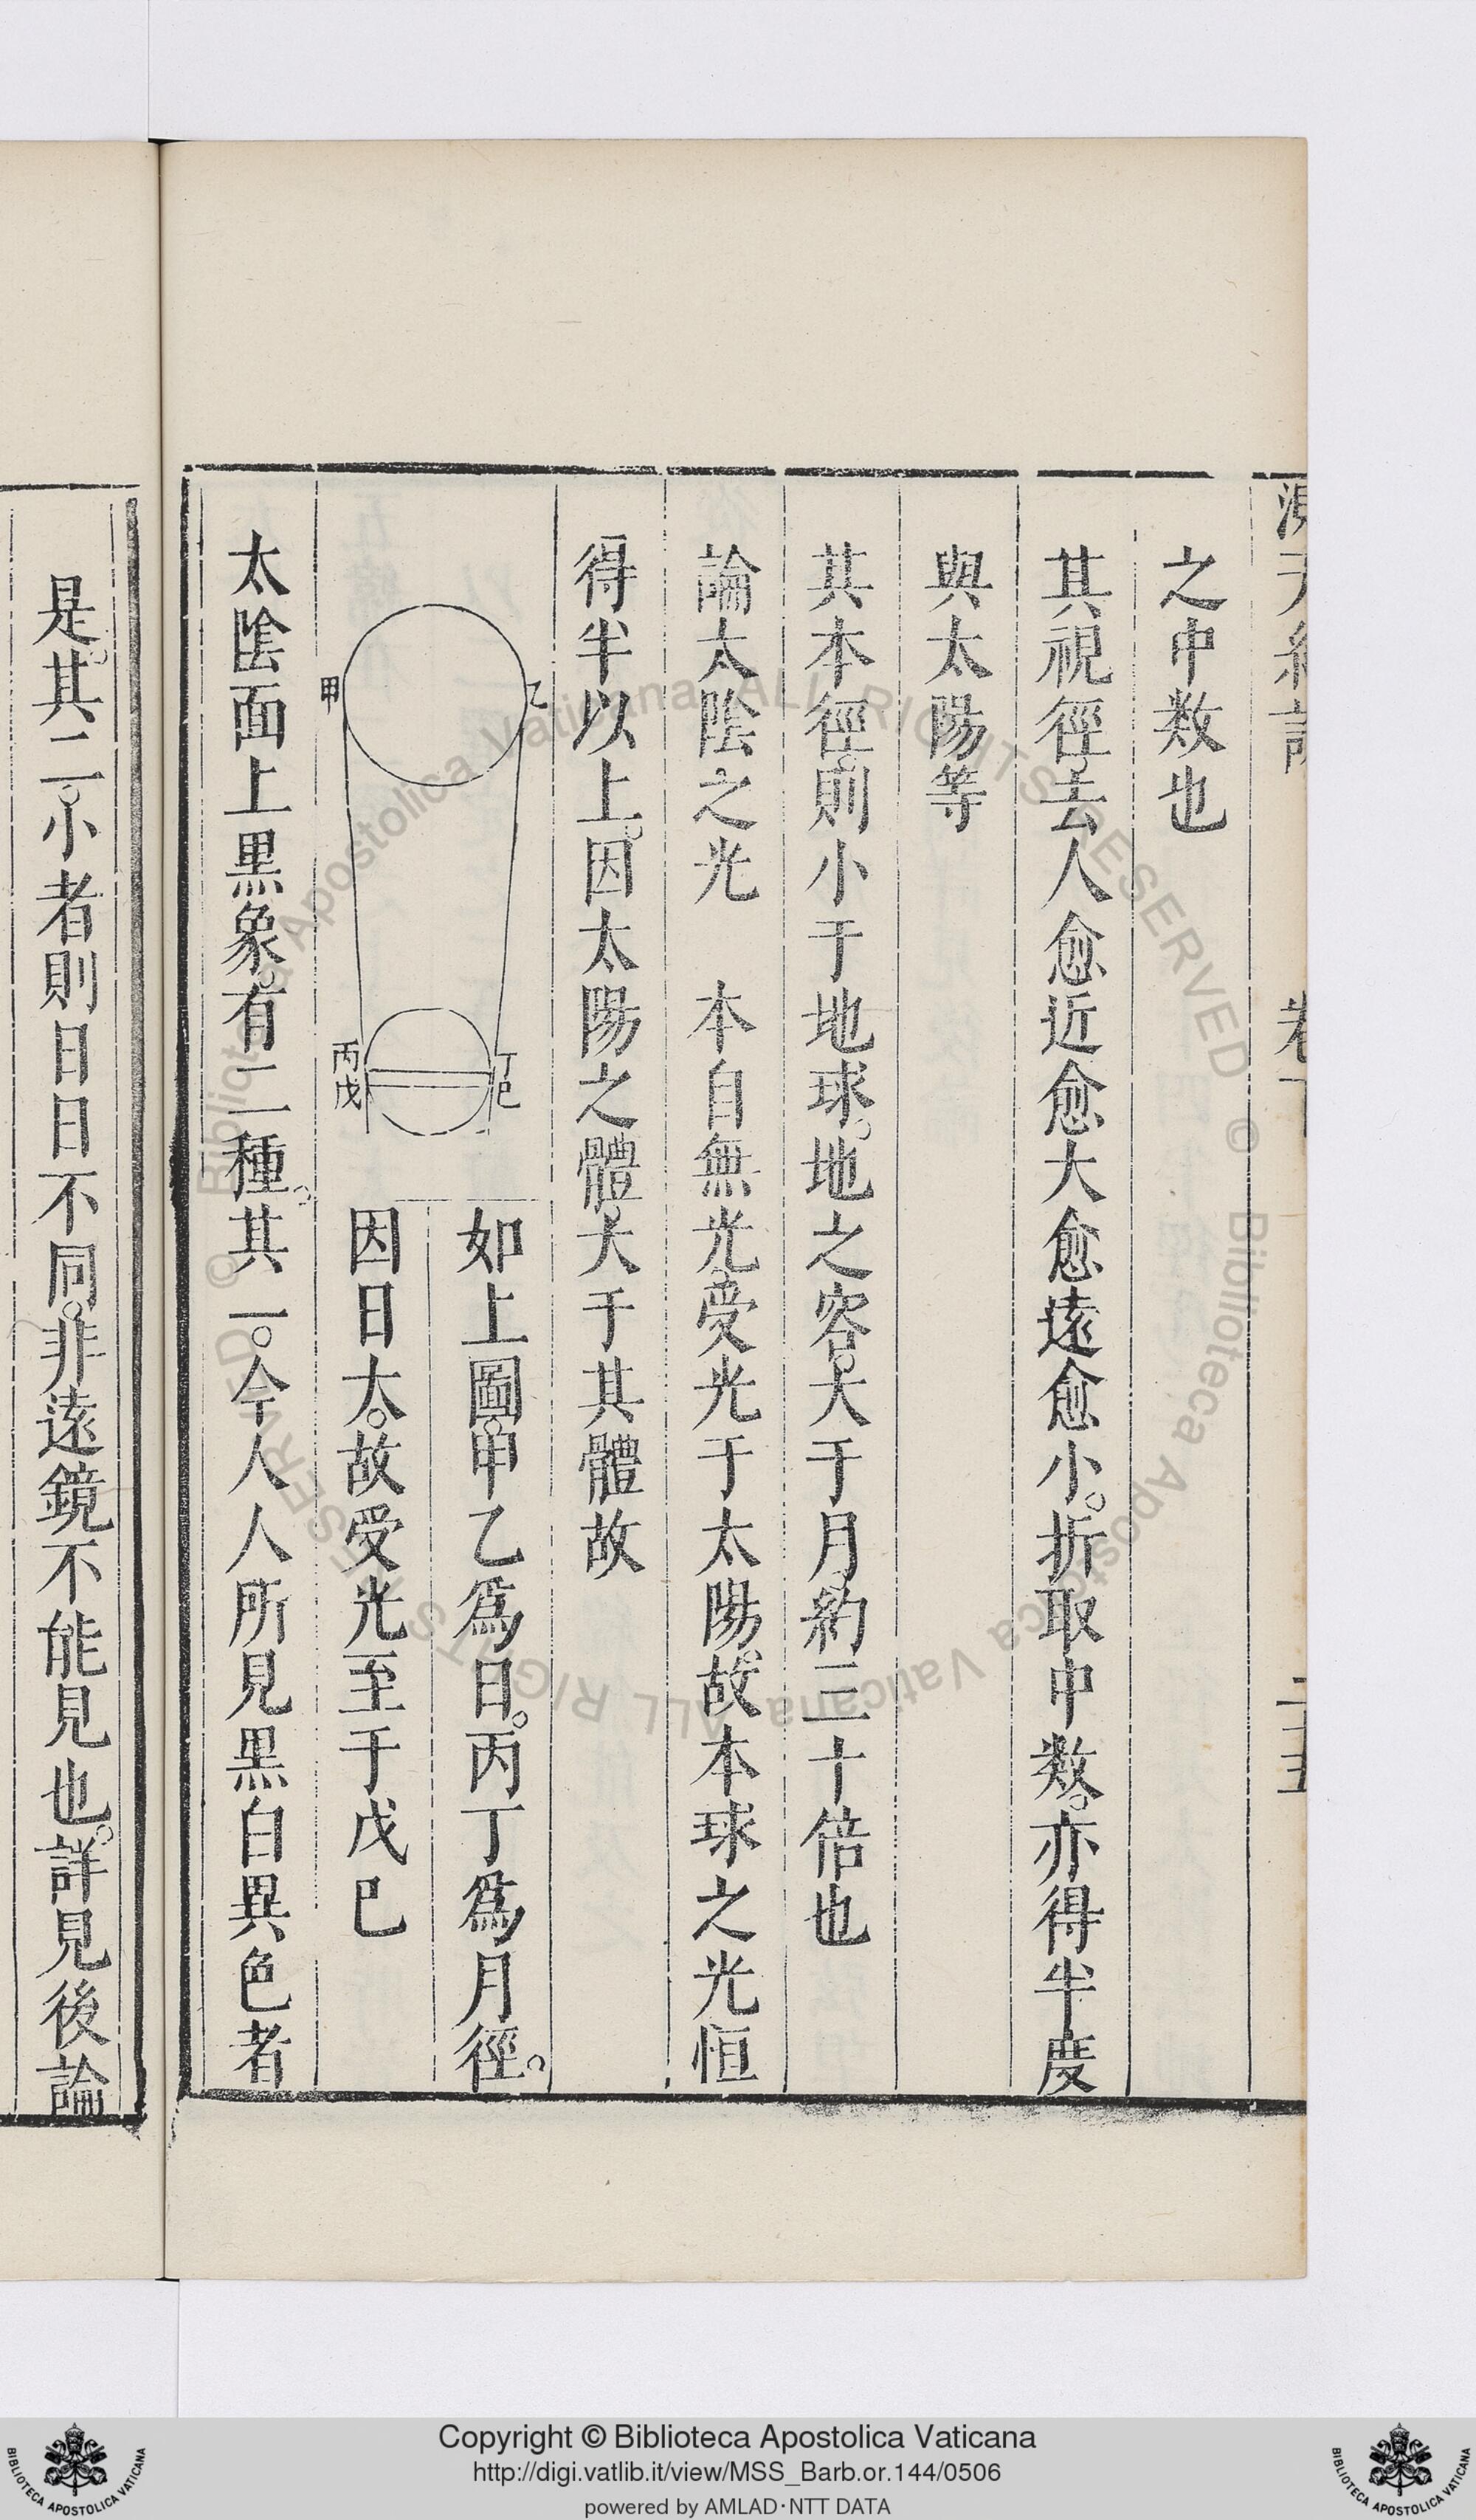 測天約說 卷下 二十五
之中数也
其視徑。去人愈近愈大愈遠愈小。折取中数。亦得半度
與太陽等
其本徑。則小于地球。地之容。大于月。約三十倍也
論太陰之光 本自無光。受光于太陽。故本球之光恒
得半以上。因太陽之體。大于其體故
乙
甲
丁己
丙戊
如上圖。甲乙爲日。丙丁爲月徑。
因日大。故受光至于戊已
太陰面上黑象。有二種。其一。今人人所見黑白異色者
是。其二。小者則日日不同。非遠鏡不能見也。詳見後論
Biblioteca Apostolica Vaticana ALL RIGHTS RESERVED © Biblioteca Apostolica Vaticana ALL RIGHTS RESERVED ©
Copyright © Biblioteca Apostolica Vaticana
http://digi.vatlib.it/view/MSS_Barb.or.144/0506
powered by AMLAD·NTT DATA
BIBLIOTECA APOSTOLICA VATICANA
BIBLIOTECA APOSTOLICA VATICANA